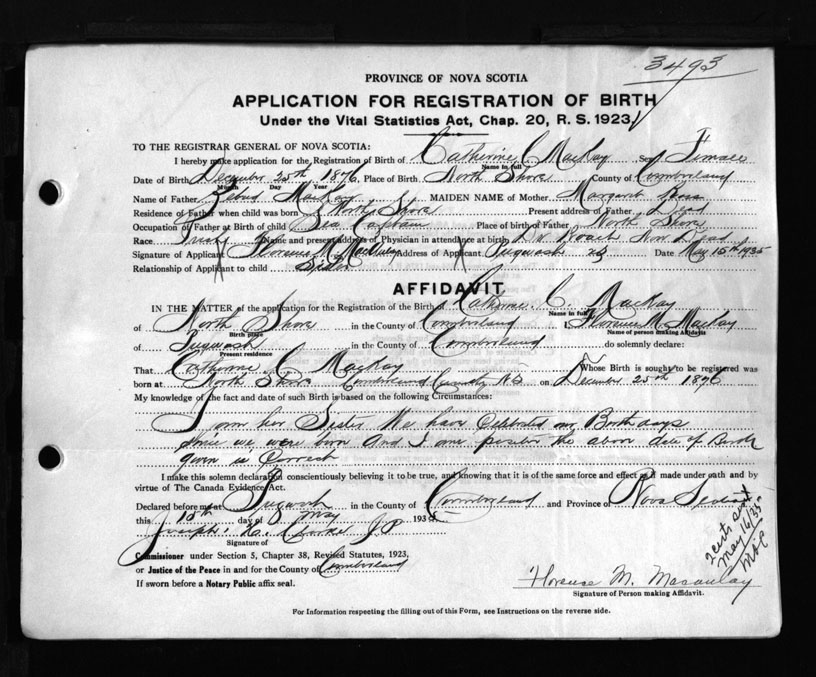 3493
PROVINCE OF NOVA SCOTIA
APPLICATION FOR REGISTRATION OF BIRTH
Under the Vital Statistics Act, Chap. 20, R. S. 1923,
TO THE REGISTRAR GENERAL OF NOVA SCOTIA:
I hereby make application for the Registration of Birth of Catherine C MacKay Sex Female
Name in full
Date of Birth December 25th 1896 Place of Birth North Shore County of Cumberland
Month Day Year
Name of Father MacKay MAIDEN NAME of Mother Margaret Ross
Residence of Father when child was born North Shore Present address of Father Dead
Occupation of Father at Birth of child Sea Captain Place of birth of Father North Shore
Race Irish Name and present address of Physician in attendance at birth Dr Roach Now Dead
Signature of Applicant Florence M MacAulay Address of Applicant Pugwash NS Date May 15th 1935
Relationship of Applicant to child Sister
AFFIDAVIT
IN THE MATTER of the application for the Registration of the Birth of Catherine C. MacKay
Name in full
of North Shore in the County of Cumberland I, Florence M. MacKay
Birth place Name of person making Affidavit
of Pugwash in the County of Cumberland do solemnly declare:
Present residence
That Catherine C MacKay Whose Birth is sought to be registered was
born at North Shore Cumberland County N.S. on December 25th 1896
My knowledge of the fact and date of such Birth is based on the following Circumstances:
I am her Sister We have Celebrated our Birthdays
since we were born And I am positive the above date of Birth
given is Correct
I make this solemn declaration conscientiously believing it to be true, and knowing that it is of the same force and effect as if made under oath and by
virtue of The Canada Evidence Act.
Declared before me at Pugwash in the County of Cumberland and Province of Nova Scotia
this 15th day of May 1935
Joseph H. J P
Signature of
Commissioner under Section 5, Chapter 38, Revised Statutes, 1923,
or Justice of the Peace in and for the County of Cumberland
If sworn before a Notary Public affix seal.
Florence M. Macaulay
Signature of Person making Affidavit.
2 cert sent
May 16/35
For Information respecting the filling out of this Form, see Instructions on the reverse side.